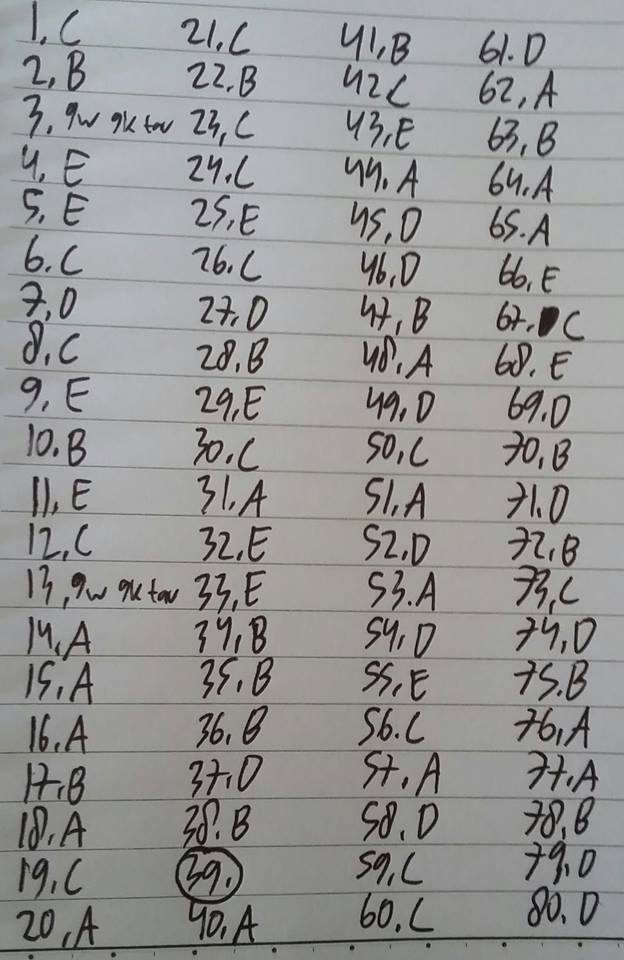 1, C
2, B
3, gw gk tau
4, E
5, E
6. C
7, D
8, C
9, E
10. B
11, E
12, C
13, gw gk tau
14, A
15, A
16. A
17. B
18. A
19. C
20, A
21. C
22. B
23, C
24. C
25, E
26. C
27. D
28. B
29, E
30. C
31. A
32. E
33, E
34, B
35, B
36. B
37. D
38. B
39.
40. A
41, B
42 C
43, E
44. A
45, D
46, D
47, B
48, A
49, D
50, C
51, A
52, D
53. A
54, D
55, E
56. C
57, A
58, D
59, C
60. C
61. D
62, A
63, B
64. A
65. A
66, E
67. C
68. E
69. D
70, B
71. D
72, B
73, C
74, D
75. B
76, A
77. A
78, B
79. D
80. D